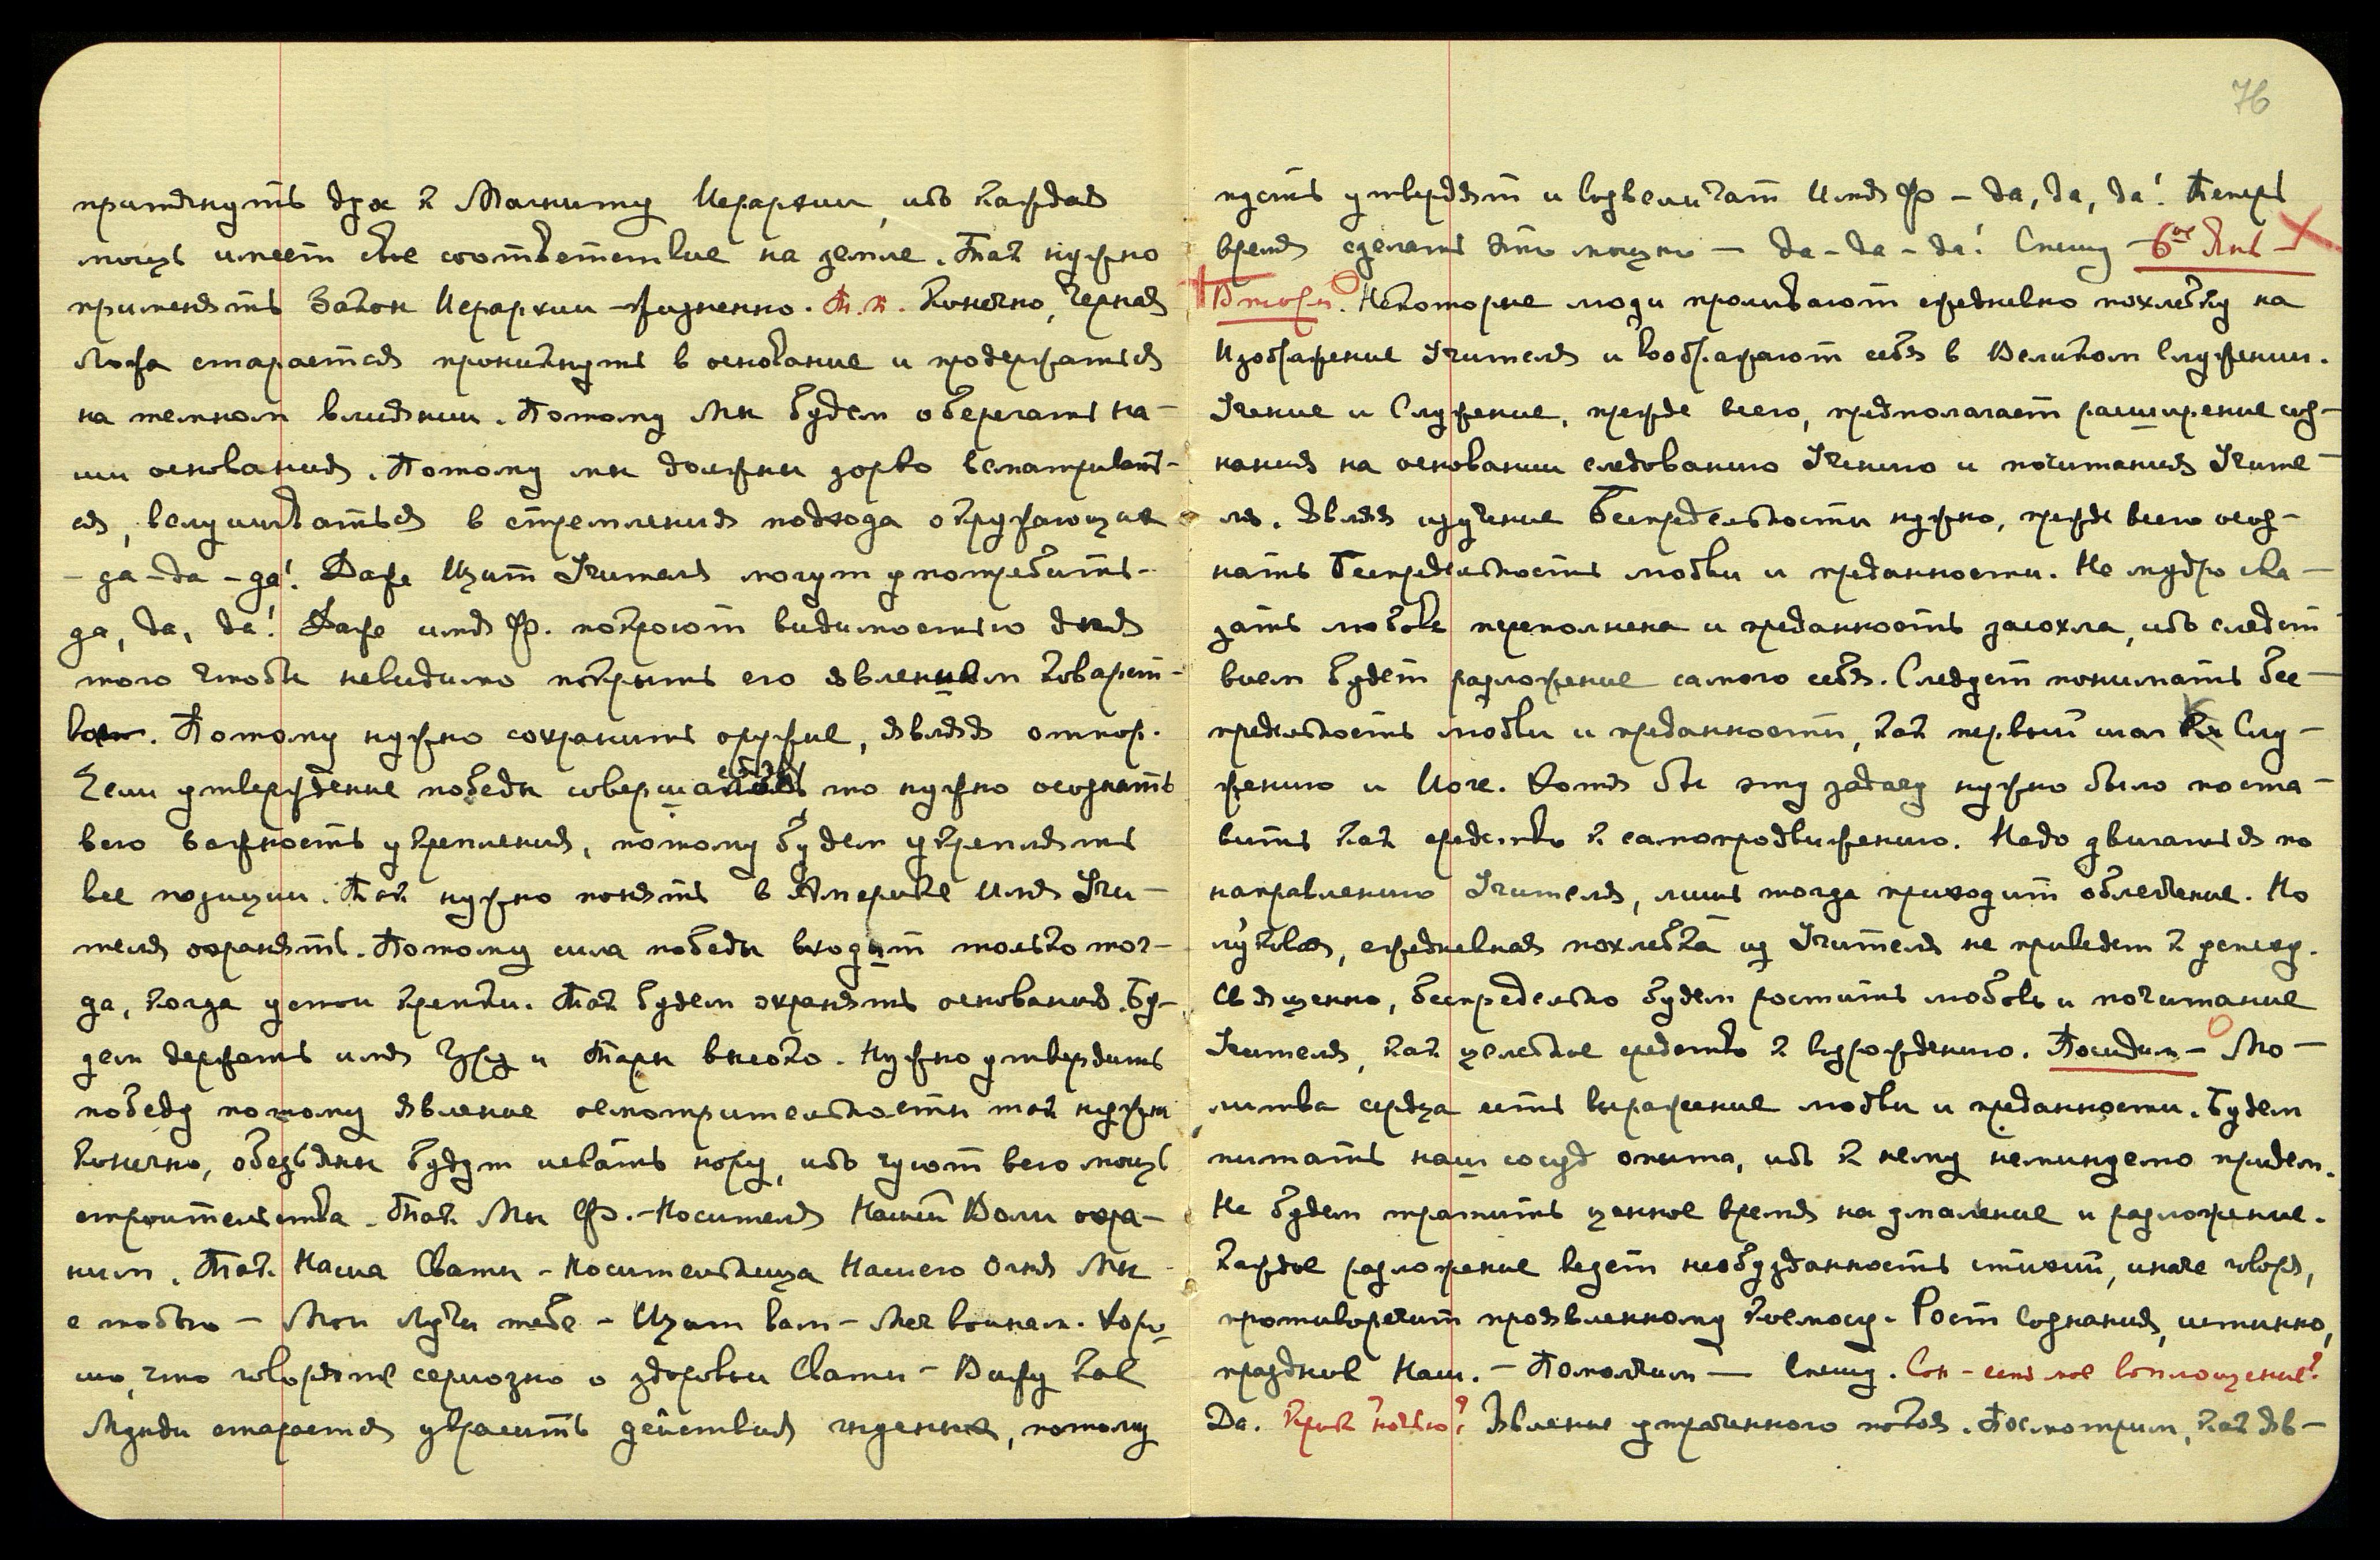 притянуть дух к Магниту Иерархии, ибо каждая
мощь имеет свое соответствие на земле. Так нужно
применять Закон Иерархии – жизненно. Т.к. Конечно, черная
ложа старается проникнуть в основание и продержаться
на темном влиянии. Потому Мы будем оберегать на-
ши основания. Потому мы должны зорко всматривать-
ся, вслушиваться в стремления подхода окружающих
– да – да – да! Даже Щит Учителя могут употребить –
да, да, да! Даже имя Ф. покроют видимостью для
того чтобы невидимо покрыть его явлением коварст-
вом. Потому нужно сохранить оружие, являя отпор.
Если утверждение победы совершается то нужно осознать
всю важность укрепления, потому будем укреплять
все позиции. Так нужно понять в Америке Имя Учи-
теля охранять. Потому сила победы входит только тог-
да, когда устои крепки. Так будем охранять основания. Бу-
дем держать имя Уру и Тары высоко. Нужно утвердить
победу потому явление осмотрительности так нужны
Конечно, обезьяны будут искать нору, ибо чуют всю мощь
строительства. Так Мы Ф. – Носителя Нашей Воли охра-
ним. Так. Наша Свати – Носительница Нашего Огня Мы
с тобою – Мои Лучи тебе – Щит вам – Меч воинам. Хоро-
шо, что говорите серьозно о здоровьи Свати – Вижу как
Мунди старается украсить действия, потому
76
пусть утвердят и возвеличат Имя Ф – да, да, да! Теперь
время сделать это мощно – да – да – да! Спешу – 6ое Янв –
Вторн. Некоторые люди проливают ежедневно похлебку на
Изображение Учителя и воображают себя в Великом Служении.
Учение и Служение, прежде всего, предполагает расширение соз-
нания на основании следованию Учению и почитания Учите-
ля. Являя изучение Беспредельности нужно, прежде всего осоз-
нать Беспредельность любви и преданности. Не мудро ска-
зать любовь переполнена и преданность засохла, ибо следст
вием будет разложение самого себя. Следует понимать бес-
предельность любви и преданности, как первый шаг к Слу-
жению и Йоге. Хотя бы эту задачу нужно было поста-
вить как средство к самопродвижению. Надо двигаться по
направлению Учителя, лишь тогда приходит облегчение. Но
ежедневная похлебка из Учителя не приведет к успеху.
Священно, беспредельно будем ростить любовь и почитание
Учителя, как целебное средство к возрождению. Посидим – Мо-
литва сердца есть выражение любви и преданности. Будем
питать наш сосуд опыта, ибо к нему неминуемо придем.
Не будем тратить ценное время на умаление и разложение.
Каждое разложение ведет необузданность стихий, иначе говоря,
противоречит проявленному Космосу. Рост Сознания, истинно,
праздник Наш. – Помолчим – Спешу. Сон – есть мое воплощение?
Да. Крик ночью? Явление утраченного покоя. Посмотрим, как яв-